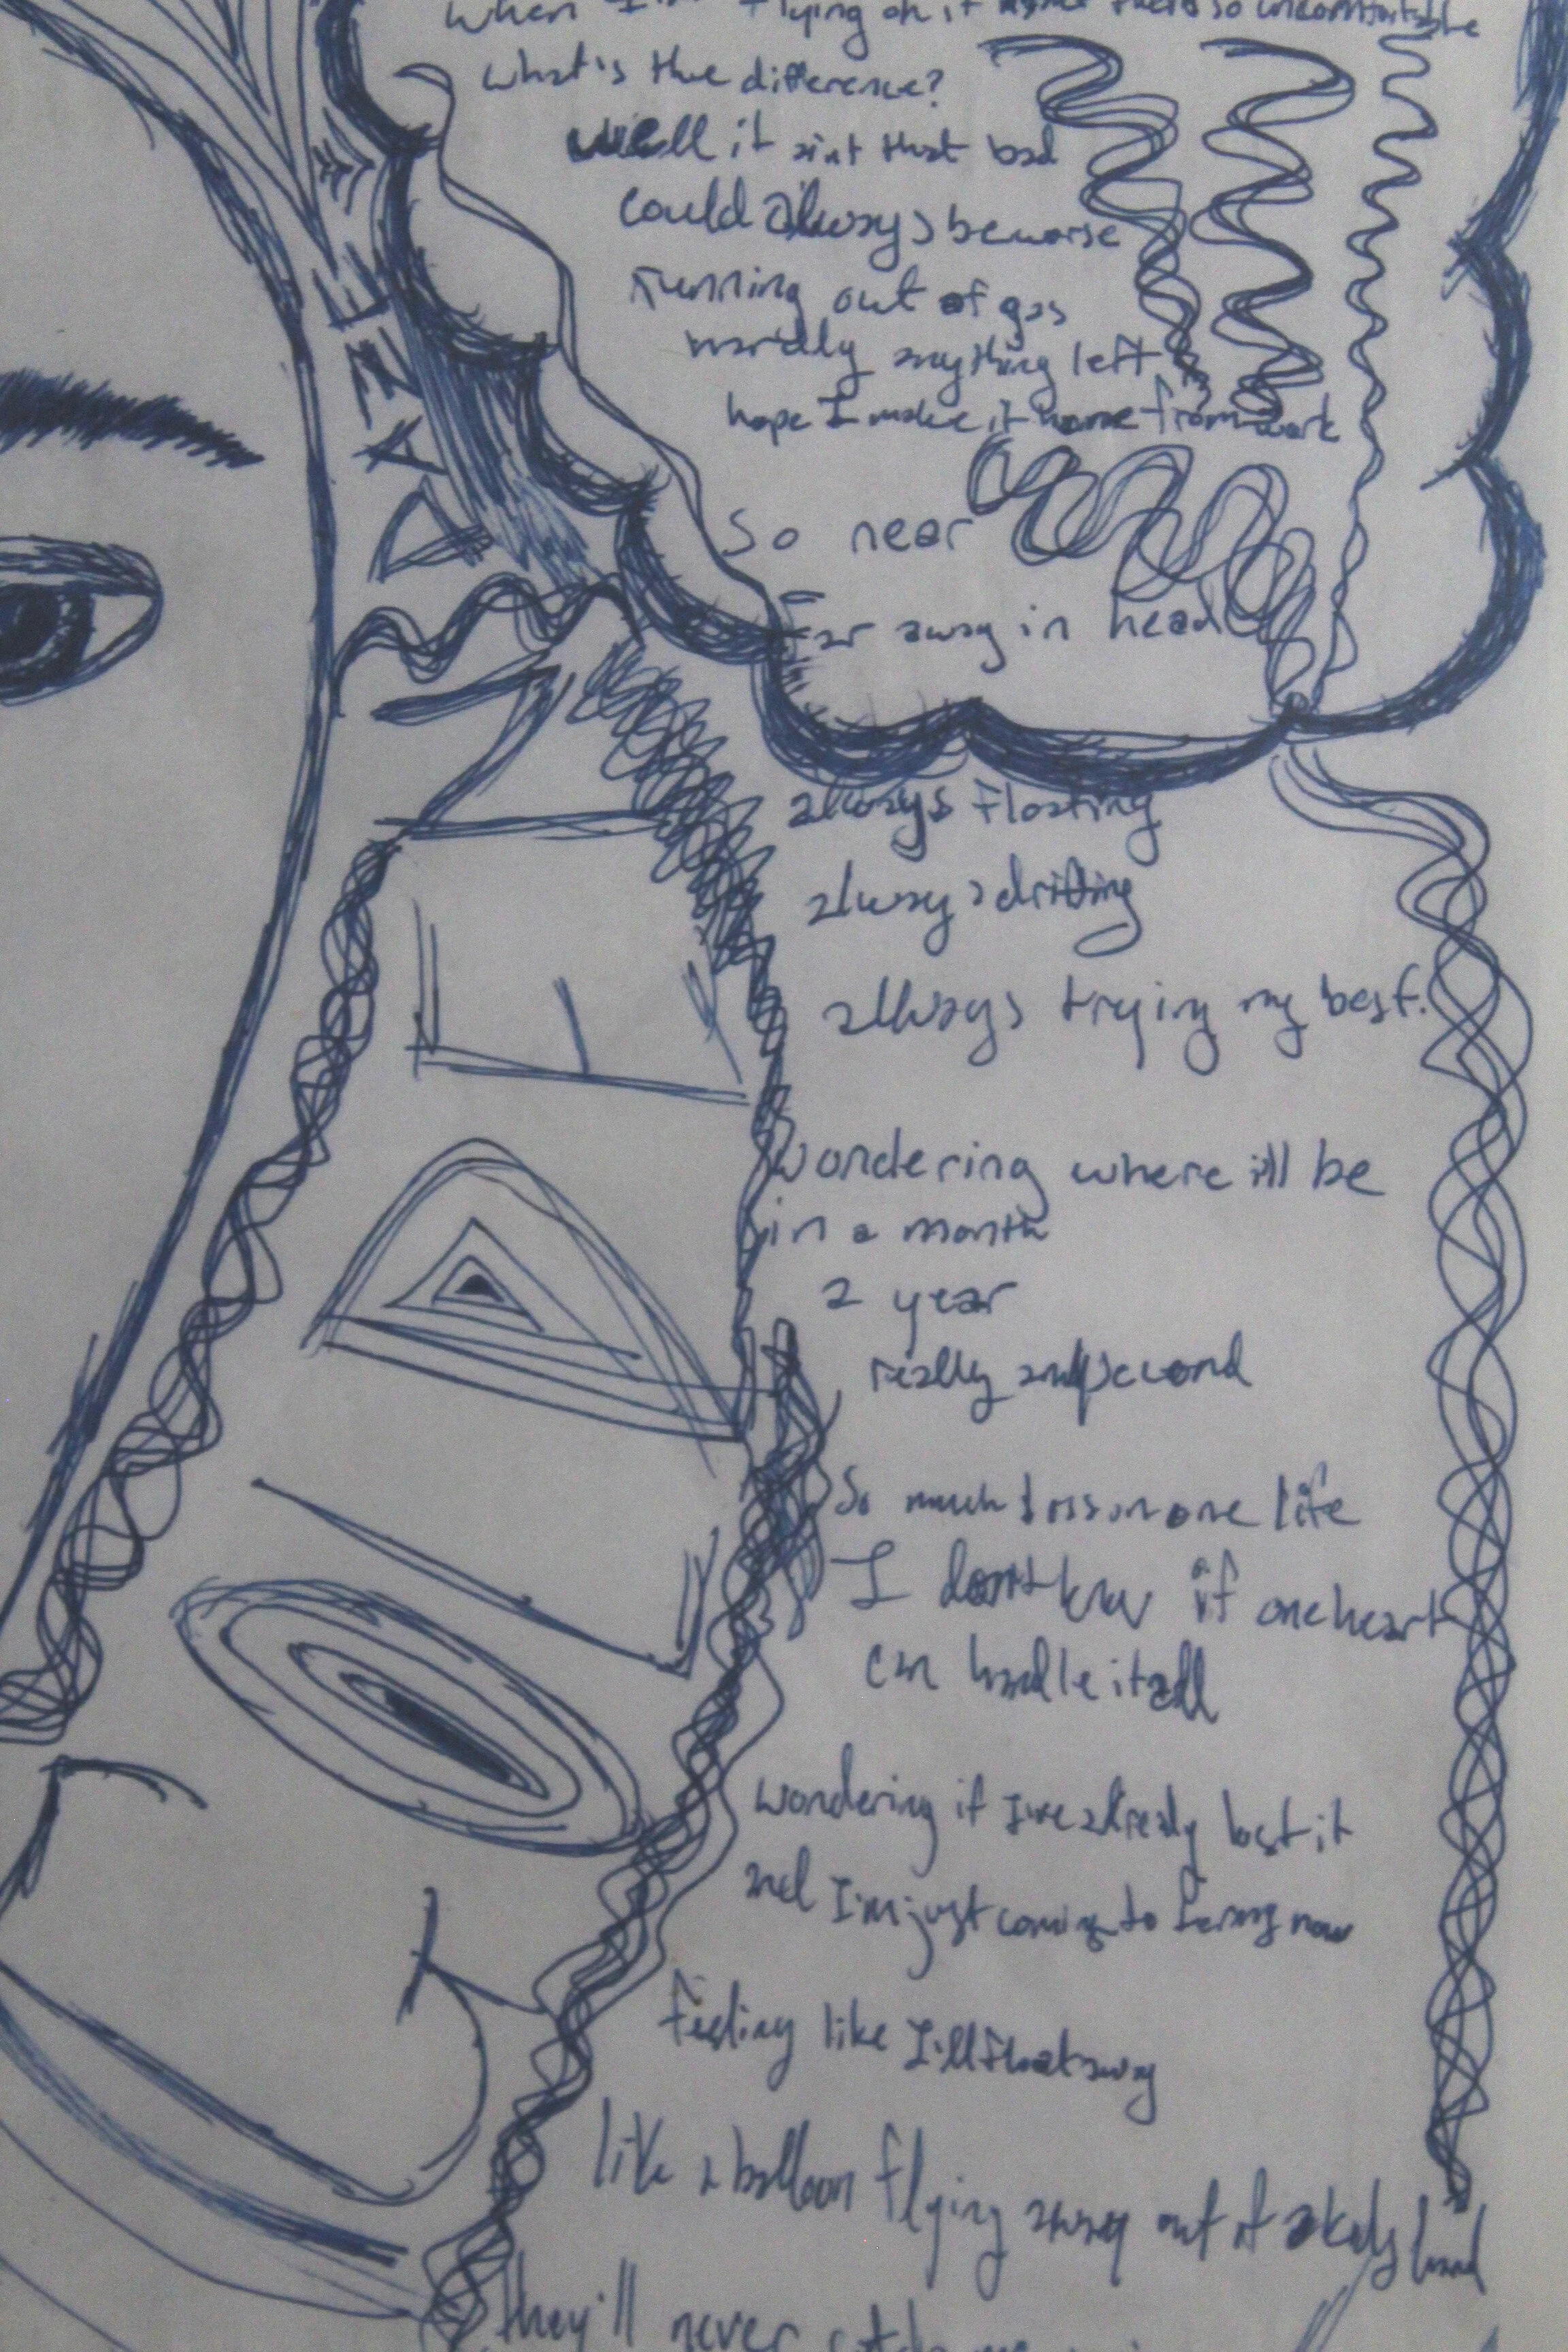 When I'm flying on it so uncomfortable
what's the difference?
well it aint that bad
could always be worse
running out of gas
hardly anything left
hope I make it home from work
So near
Far away in head
always floating
always drifting
always trying my best.
Wondering where ill be
in a month
a year
really any second
So much loss in one life
I don't know if one heart
can handle it all
wondering if I've already lost it
and I'm just coming to terms now
feeling like I'll float away
like a balloon flying away out of a kids hand
they'll never catch me
DAZE